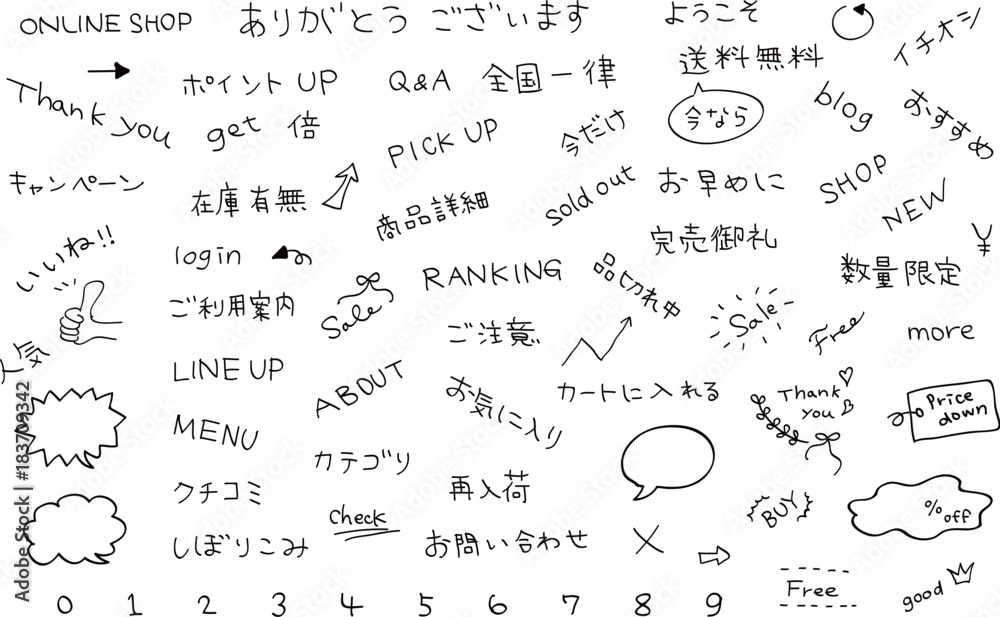 ONLINE SHOP
ありがとう ございます
ようこそ
イチオシ
Thank you
ポイント UP
Q&A
全国一律
送料無料
get 倍
PICK UP
今だけ
今なら
blog
おすすめ
キャンペーン
在庫有無
商品詳細
sold out
お早めに
SHOP
NEW
いいね!!
login
RANKING
完売御礼
品切れ中
数量限定
¥
ご利用案内
Sale
ご注意
Sale
Free
more
人気
LINE UP
ABOUT
お気に入り
カートに入れる
Thank
you
Price
down
MENU
カテゴリ
クチコミ
再入荷
Check
BUY
%off
しぼりこみ
お問い合わせ
Free
good
0 1 2 3 4 5 6 7 8 9
Adobe Stock | #183709342